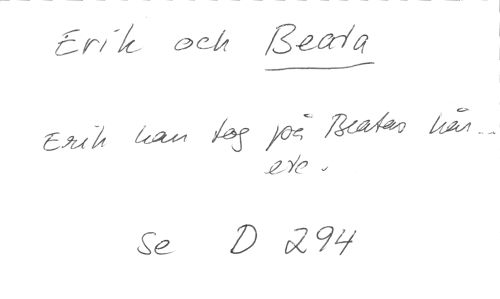 Erik och Beata
Erik han tog på Beatas hår...
etc.
Se D 294